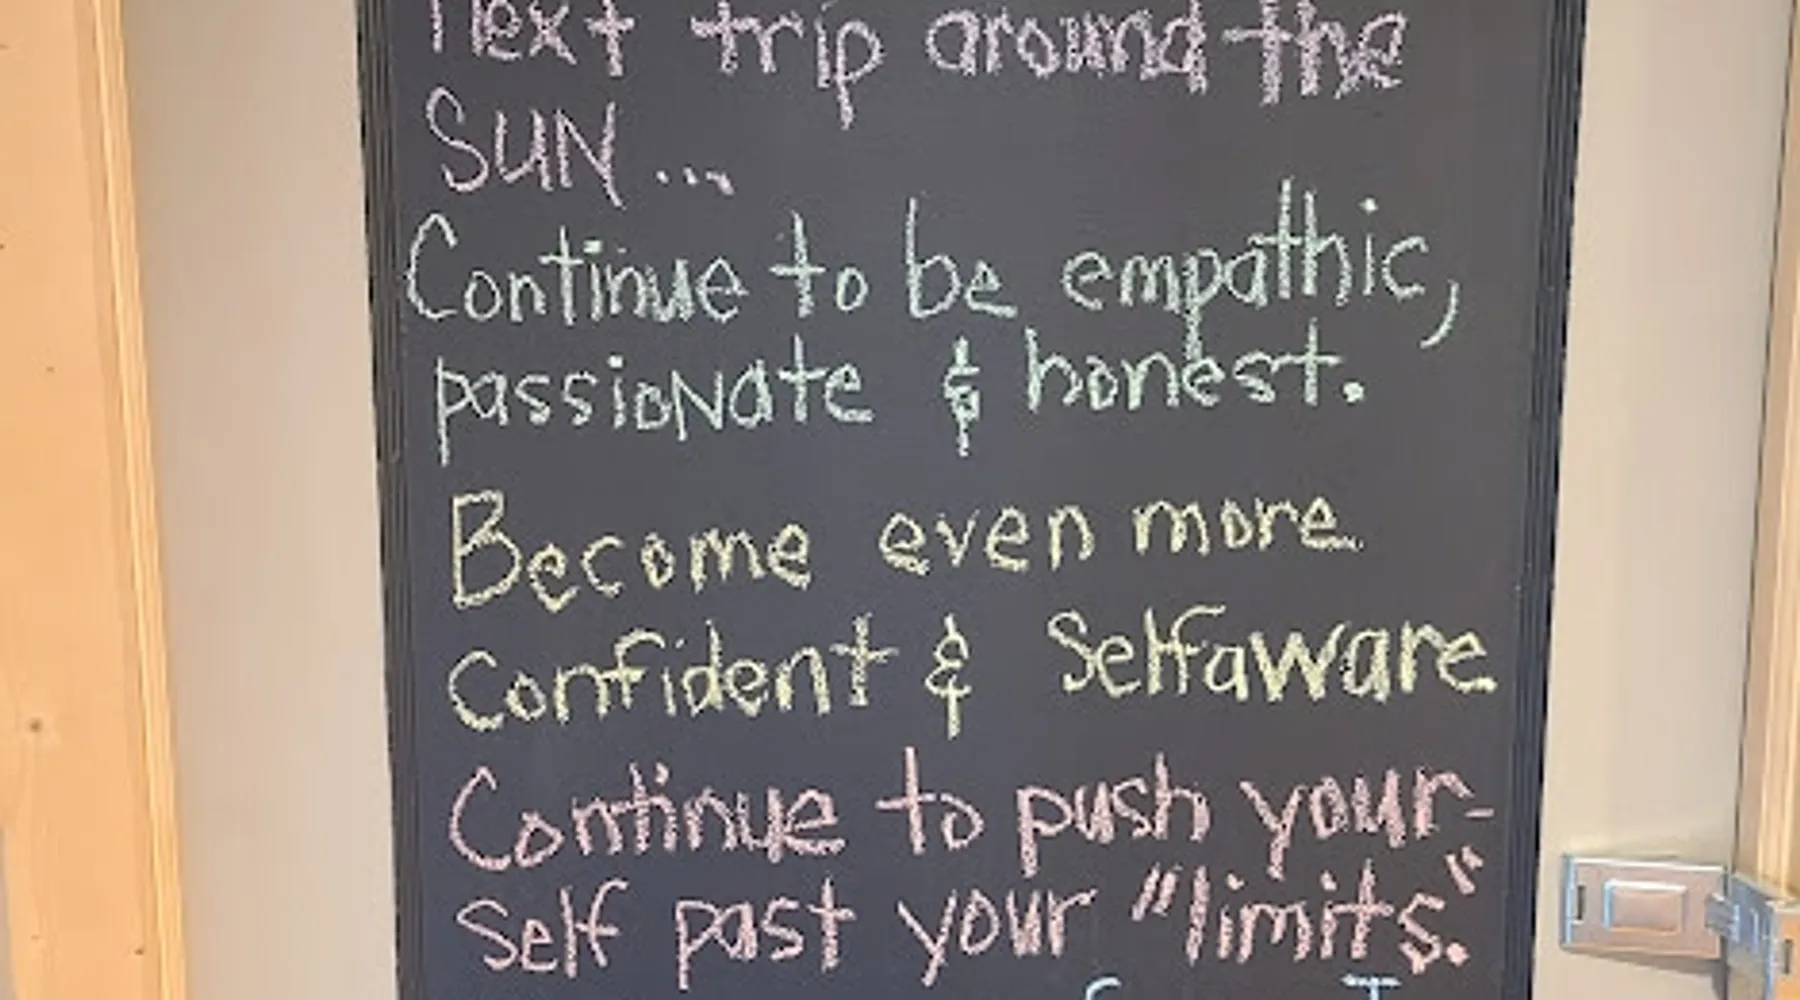 next trip around the
SUN...
Continue to be empathic,
passionate & honest.
Become even more
Confident & Selfaware
Continue to push your-
Self past your "limits."